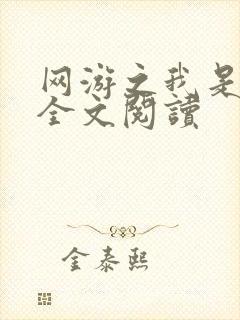 网游之我是
全文閱讀
金泰熙